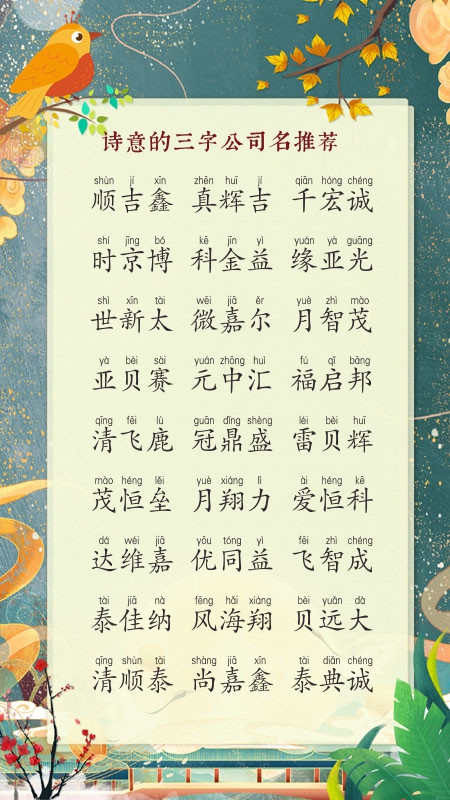 诗意的三字公司名推荐
shùn jí xīn zhēn huī jí qiān hóng chéng
顺吉鑫 真辉吉 千宏诚
shí jīng bó kē jīn yì yuán yà guāng
时京博 科金益 缘亚光
shì xīn tài wēi jiā ěr yuè zhì mào
世新太 微嘉尔 月智茂
yà bèi sài yuán zhōng huì fú qǐ bāng
亚贝赛 元中汇 福启邦
qīng fēi lù guān dǐng shèng léi bèi huī
清飞鹿 冠鼎盛 雷贝辉
mào héng lěi yuè xiáng lì ài héng kē
茂恒垒 月翔力 爱恒科
dá wéi jiā yōu tóng yì fēi zhì chéng
达维嘉 优同益 飞智成
tài jiā nà fēng hǎi xiáng bèi yuǎn dà
泰佳纳 风海翔 贝远大
qīng shùn tài shàng jiā xīn tài diǎn chéng
清顺泰 尚嘉鑫 泰典诚